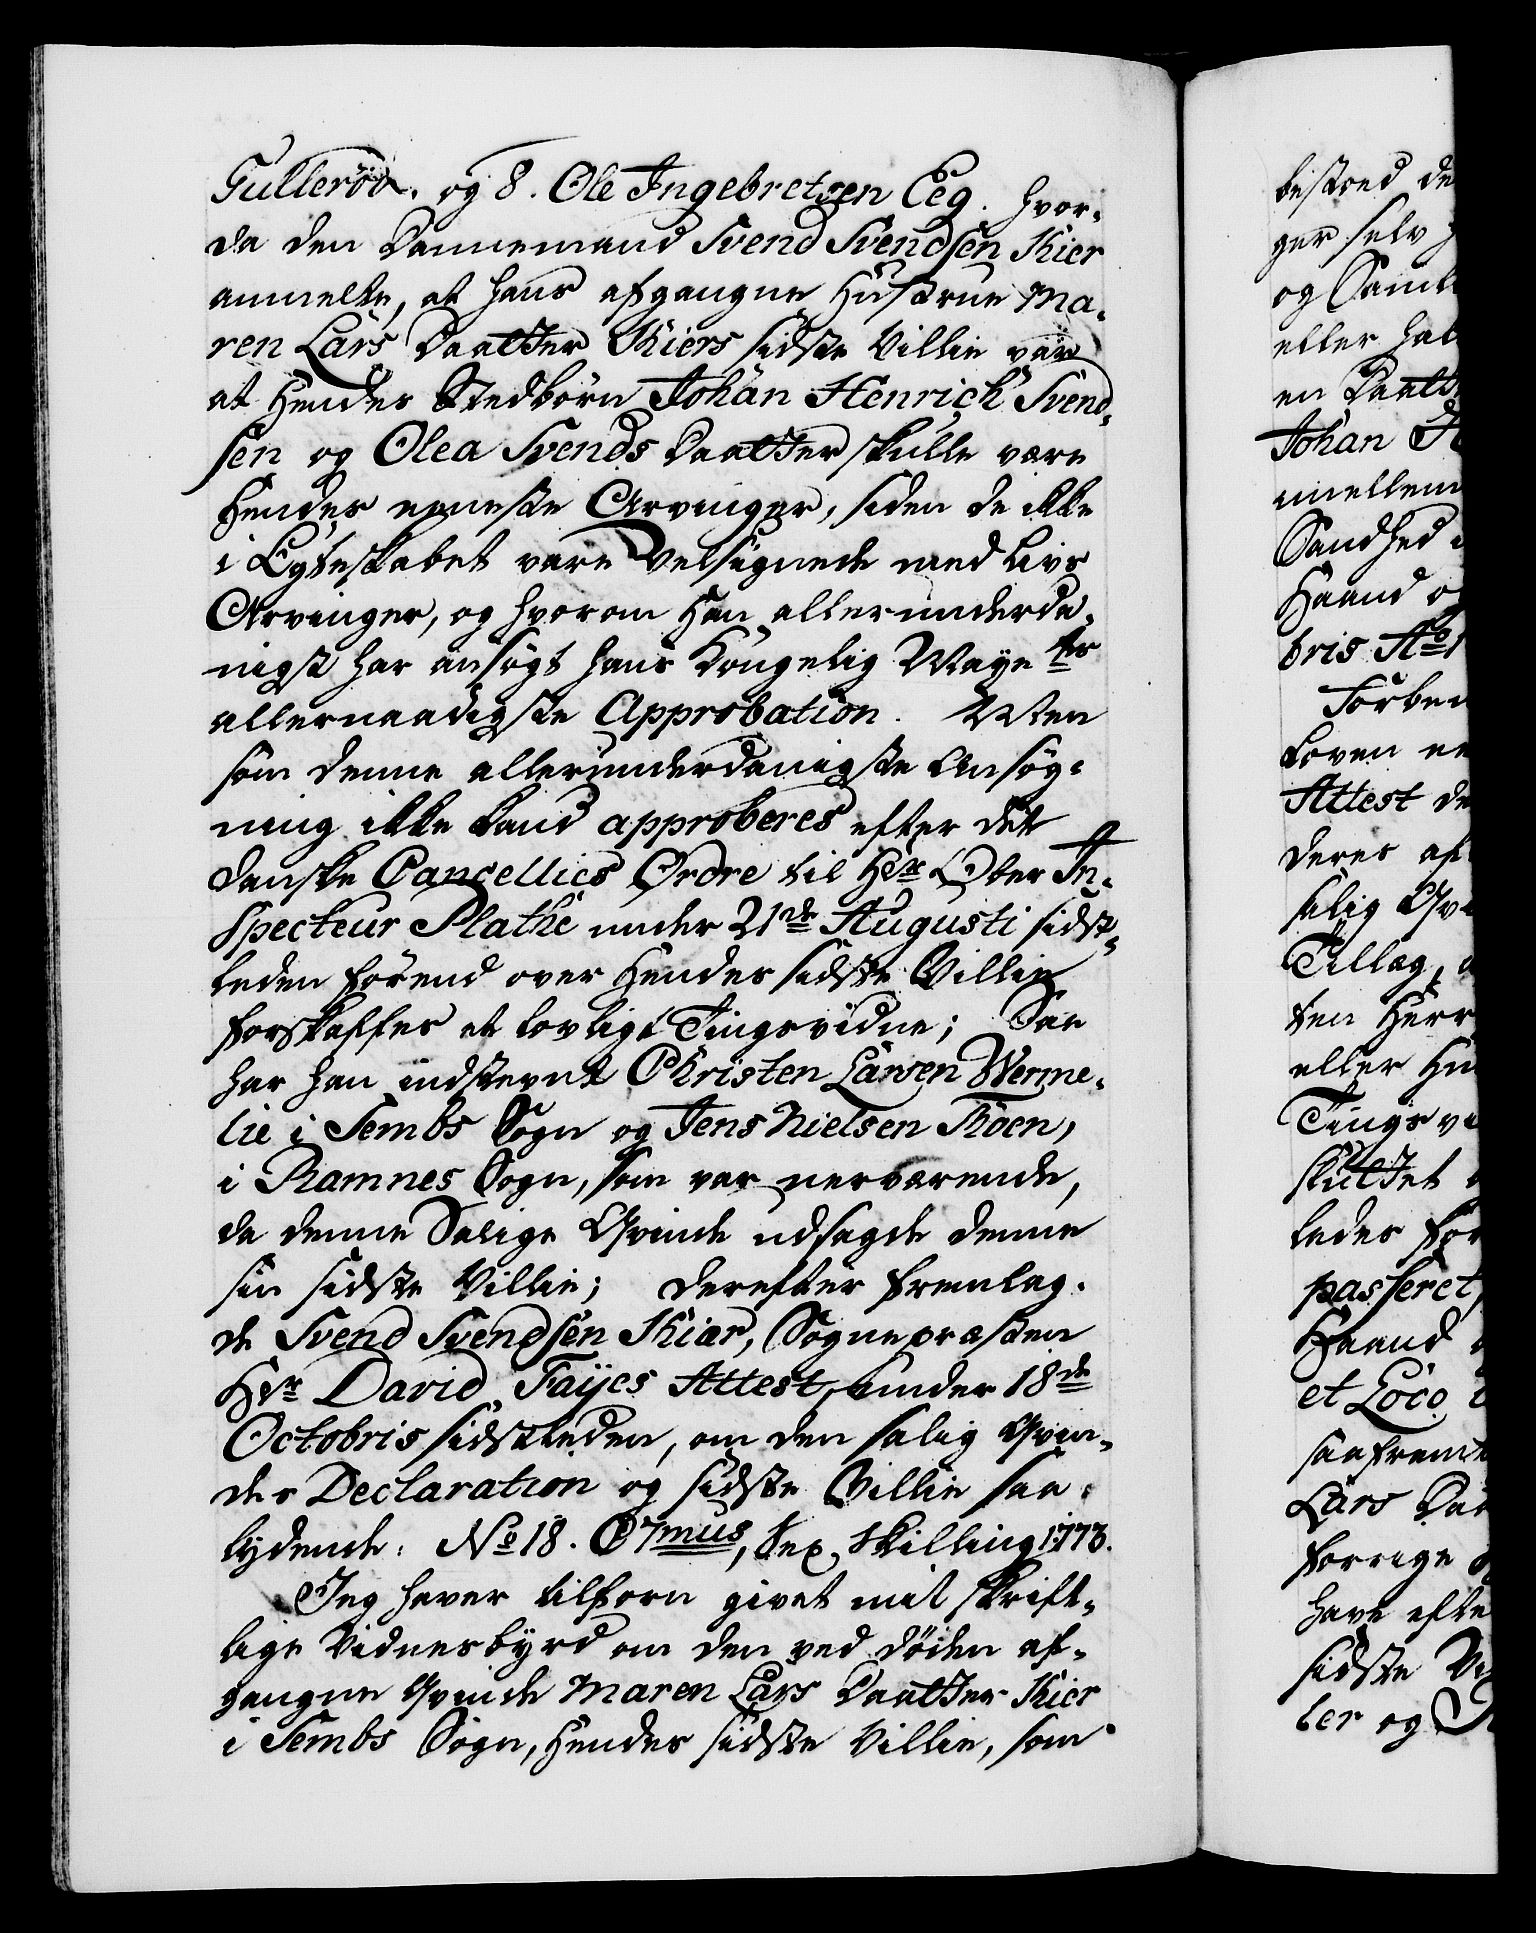 Gullerød. og 8. Ole Ingebretsen Eeg. hvor-
da den Dannemand Svend Svendsen Kier
anmelte, at hans afgangne Hustrue Ma-
ren Lars Daatter Kiers sidste Villie var
at Hendes Stedbørn Johan Henrich Svend-
sen og Olea Svends Daatter skulle være
Hendes eeneste Arvinger, siden de ikke
i Egteskabet vare Velsignede med Livs
Arvinger, og hvorom Han allerunderda-
nigst har ansøgt hans Kongelig Maye ts
allernaadigste Approbation. Men
som denne allerunderdanigste Ansøg-
ning ikke kand approberes efter det
danske Cancellies Ordre til Hr Ober In-
specteur Plathe under 21de Augusti sidst-
leden førend over Hendes sidste Villie
forskaffes et lovligt Tingsvidne; Saa
har han indstevnt Christen Larsen Werme-
lie i Sembs Sogn og Jens Nielsen Skoen,
i Ramnes Sogn, som var nerværende,
da denne Salige Qvinde udsagde denne
sin sidste Villie; derefter fremlag-
de Svend Svendsen Kiær, Sognepræsten
Hr David Fayes Attest, under 18de
Octobris sidstleden, om den salig Qvin-
des Declaration og sidste Villie saa-
lydende: No 18. C 7mus, Sex Skilling 1773.
Jeg haver tilforn givet mit skrift-
lige Vidnesbyrd om den ved døden af-
gangne Qvinde Maren Lars Daatter Kier
i Sembs Sogn, Hendes sidste Villie, som
bestoed de
ger selv
og Saml
eller hal
en Daatt
Johan H
imellem
Sandhed
Haand og
bris Ao 1
Forben
Loven
Attest de
deres af
salig Qvi
Tillæg,
ten Herr
eller Hu
Tings vi
sluttet
ledes for
passeret,
Haand
et Loco
saafremt
Lars Daa
forrige
have efte
sidste Vi
ler og